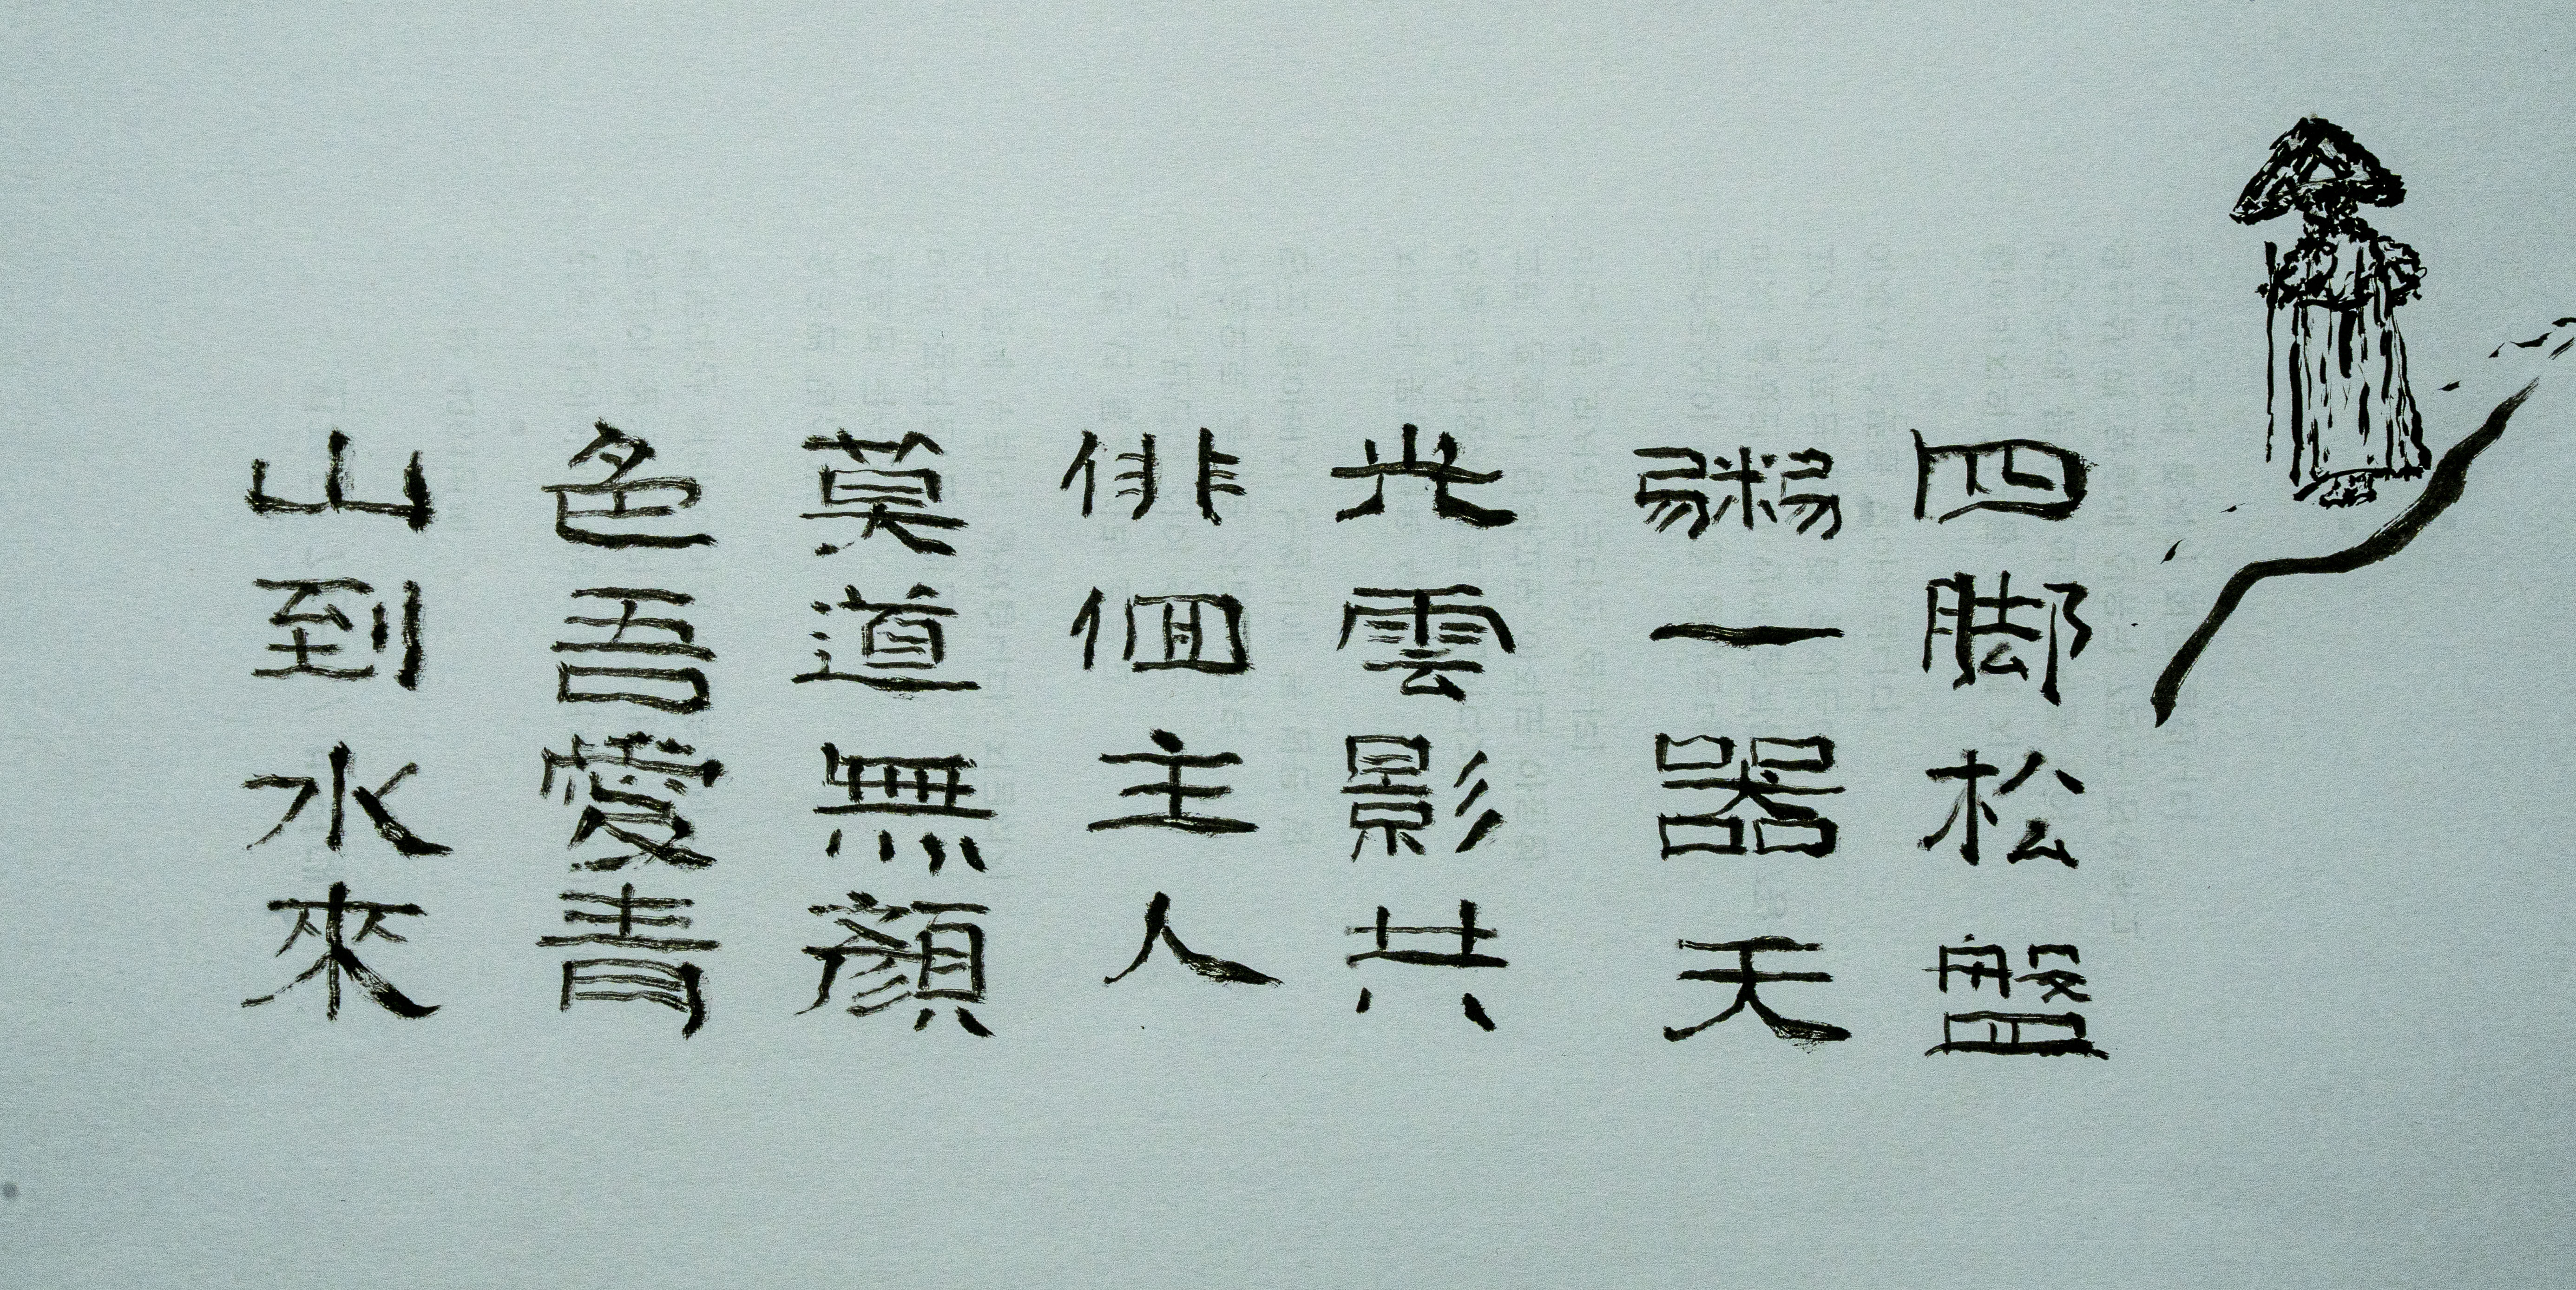 四脚松盤
粥一器天
光雲影共
俳佪主人
莫道無顔
色吾愛青
山到水來